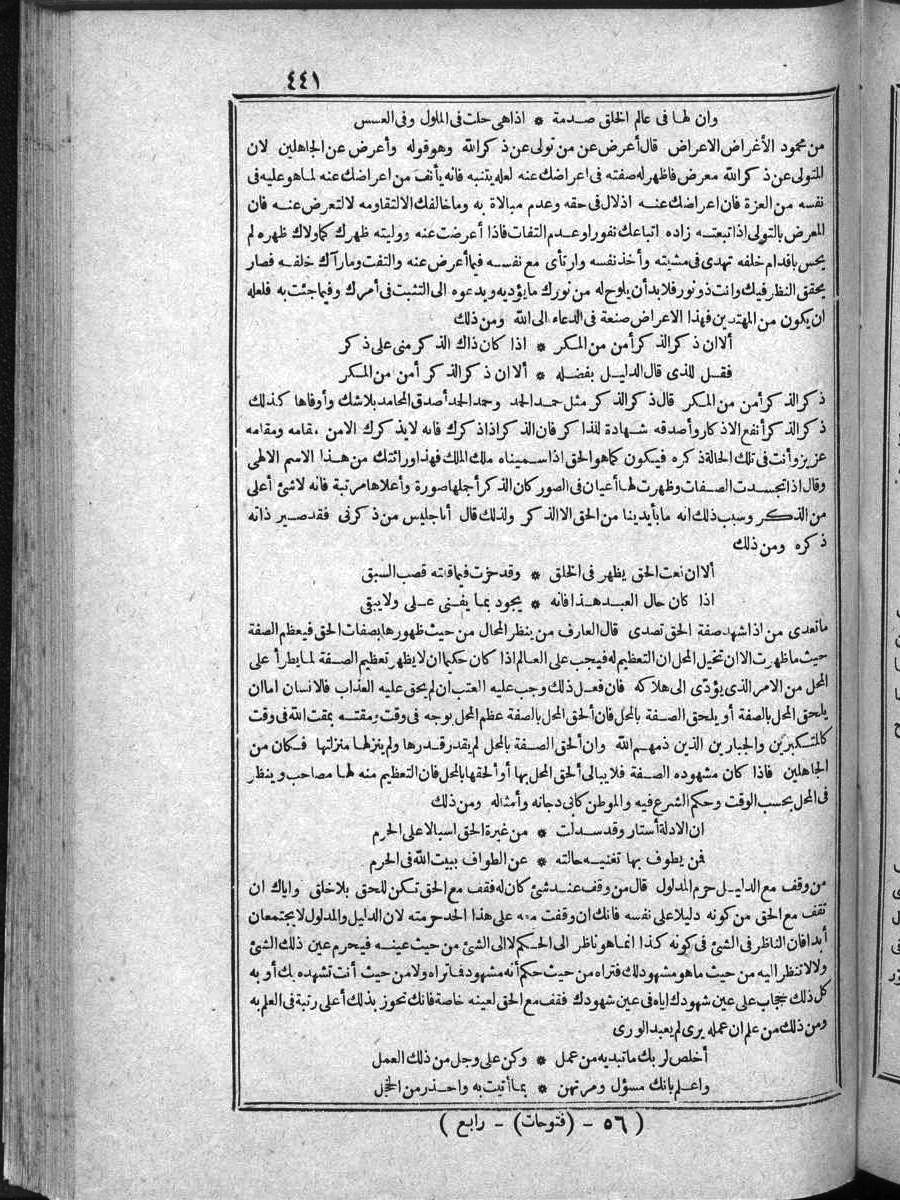 ٤٤١
وان لها فى عالم الخلق صدمة * اذا هى حلت فى الملول وفى العسس
من محمود الأغراض الاعراض قال أعرض عن من تولى عن ذكر الله وهو قوله وأعرض عن الجاهلين لان
المتولى عن ذكر الله معرض فاظهر له صفته فى اعراضك عنه لعله يتنبه فانه يأنف من اعراضك عنه لما هو عليه فى
نفسه من العزة فان اعراضك عنه اذلال فى حقه وعدم مبالاة به وما خالفك الا لتقاومه لا لتعرض عنه فان
المعرض بالتولى اذا تبعته زاده اتباعك نفورا وعدم التفات فاذا أعرضت عنه ووليته ظهرك كما ولاك ظهره لم
يحس باقدام خلفه تهدى فى مشيته وأخذ نفسه وارتأى مع نفسه فيما أعرض عنه والتفت وما رآك خلفه فصار
يحقق النظر فيك وانت ذو نور فلا بد أن يلوح له من نورك ما يؤديه ويدعوه الى التثبت فى أمرك وفيما جئت به فلعله
ان يكون من المهتدين فهذا الاعراض صنعة فى الدعاء الى الله ومن ذلك
ألا ان ذكر الذكر أمن من المكر * اذا كان ذاك الذكر منى على ذكر
فقل للذى قال الدليل بفضله * ألا ان ذكر الذكر أمن من المكر
ذكر الذكر أمن من المكر قال ذكر الذكر مثل حمد الحمد وحمد الحمد أصدق المحامد بلا شك وأوفاها كذلك
ذكر الذكر أنفع الاذكار وأصدقه شهادة للذاكر فان الذكر اذا ذكرك فانه لا يذكرك الامن مقامه ومقامه
عزيز وأنت فى تلك الحالة ذكره فيكون كما هو الحق اذا سميناه ملك الملك فهذا وراثتك من هذا الاسم الالهى
وقال اذا تجسدت الصفات وظهرت لها أعيان فى الصور كان الذكر أجلها صورة وأعلاها مرتبة فانه لا شئ أعلى
من الذكر وسبب ذلك انه ما بأيدينا من الحق الا الذكر ولذلك قال أنا جليس من ذكرنى فقد صير ذاته
ذكره ومن ذلك
ألا ان نعت الحق يظهر فى الخلق * وقد حزت فيما قلته قصب السبق
اذا كان حال العبد هذا فانه * يجود بما يفنى على ولا يبقى
ما تعدى من اذا شهد صفة الحق تصدى قال العارف من ينظر المحال من حيث ظهورها بصفات الحق فيعظم الصفة
حيث ما ظهرت الا ان تخيل المحل ان التعظيم له فيجب على العالم اذا كان حكيما ان لا يظهر تعظيم الصفة لما يطرأ على
المحل من الامر الذى يؤدّى الى هلاكه فان فعل ذلك وجب عليه العتب ان لم يحق عليه العذاب فالانسان اما ان
يلحق المحل بالصفة أو يلحق الصفة بالمحل فان ألحق المحل بالصفة عظم المحل بوجه فى وقت ومقته بمقت الله فى وقت
كالمتكبرين والجبارين الذين ذمهم الله وان ألحق الصفة بالمحل لم يقدر قدرها ولم ينزلها منزلتها فكان من
الجاهلين فاذا كان مشهوده الصفة فلا يبالى ألحق المحل بها أو ألحقها بالمحل فان التعظيم منه لها مصاحب وينظر
فى المحل بحسب الوقت وحكم الشرع فيه والموطن كابى دجانه وأمثاله ومن ذلك
ان الادلة أستار وقد سدلت * من غيرة الحق اسبالا على الحرم
فمن يطوف بها تغنيه حالته * عن الطواف ببيت الله فى الحرم
من وقف مع الدليل حرم المدلول قال من وقف عند شئ كان له فقف مع الحق تكن للحق بلا خلق واياك ان
تقف مع الحق من كونه دليلا على نفسه فانك ان وقفت معه على هذا الحد حرمته لان الدليل والمدلول لا يجتمعان
أبدا فان الناظر فى الشئ فى كونه كذا انما هو ناظر الى الحكم لا الى الشئ من حيث عينه فيحرم عين ذلك الشئ
ولا لا تنظر اليه من حيث ما هو مشهود لك فتراه من حيث حكم أنه مشهود فما تراه ولا من حيث أنت تشهده بك أو به
كل ذلك حجاب على عين شهودك اياه فى عين شهودك فقف مع الحق لعينه خاصة فانك تحوز بذلك أعلى رتبة فى العلم به
ومن ذلك من علم ان عمله يرى لم يعبد الورى
أخلص لربك ما تبديه من عمل * وكن على وجل من ذلك العمل
واعلم بانك مسؤل ومرتهن * بما أتيت به واحذر من الخجل
( ٥٦ - (فتوحات) - رابع )